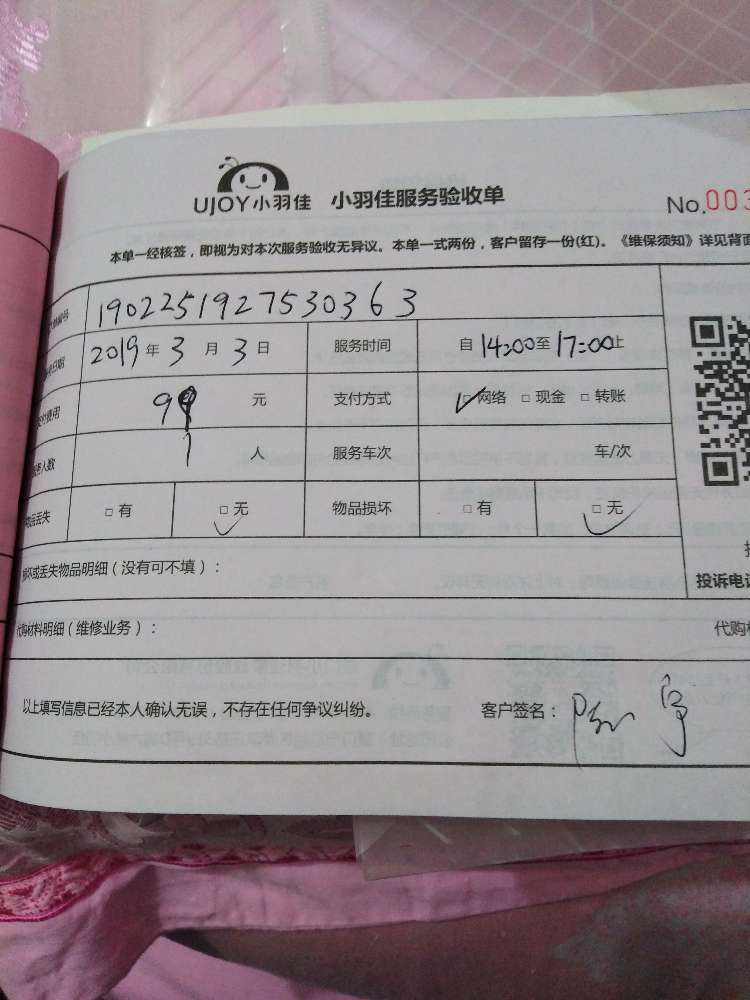 UJOY小羽佳 小羽佳服务验收单 No.003
本单一经核签，即视为对本次服务验收无异议。本单一式两份，客户留存一份(红)。《维保须知》详见背面
编号 1902251927530363
日期 2019年3月3日 服务时间 自14:00至17:00止
费用 99元 支付方式 □网络 □现金 □转账
人数 1人 服务车次 车/次
丢失 □有 □无 物品损坏 □有 □无
损坏或丢失物品明细（没有可不填）：
投诉电话
代购材料明细（维修业务）： 代购
以上填写信息已经本人确认无误，不存在任何争议纠纷。 客户签名：